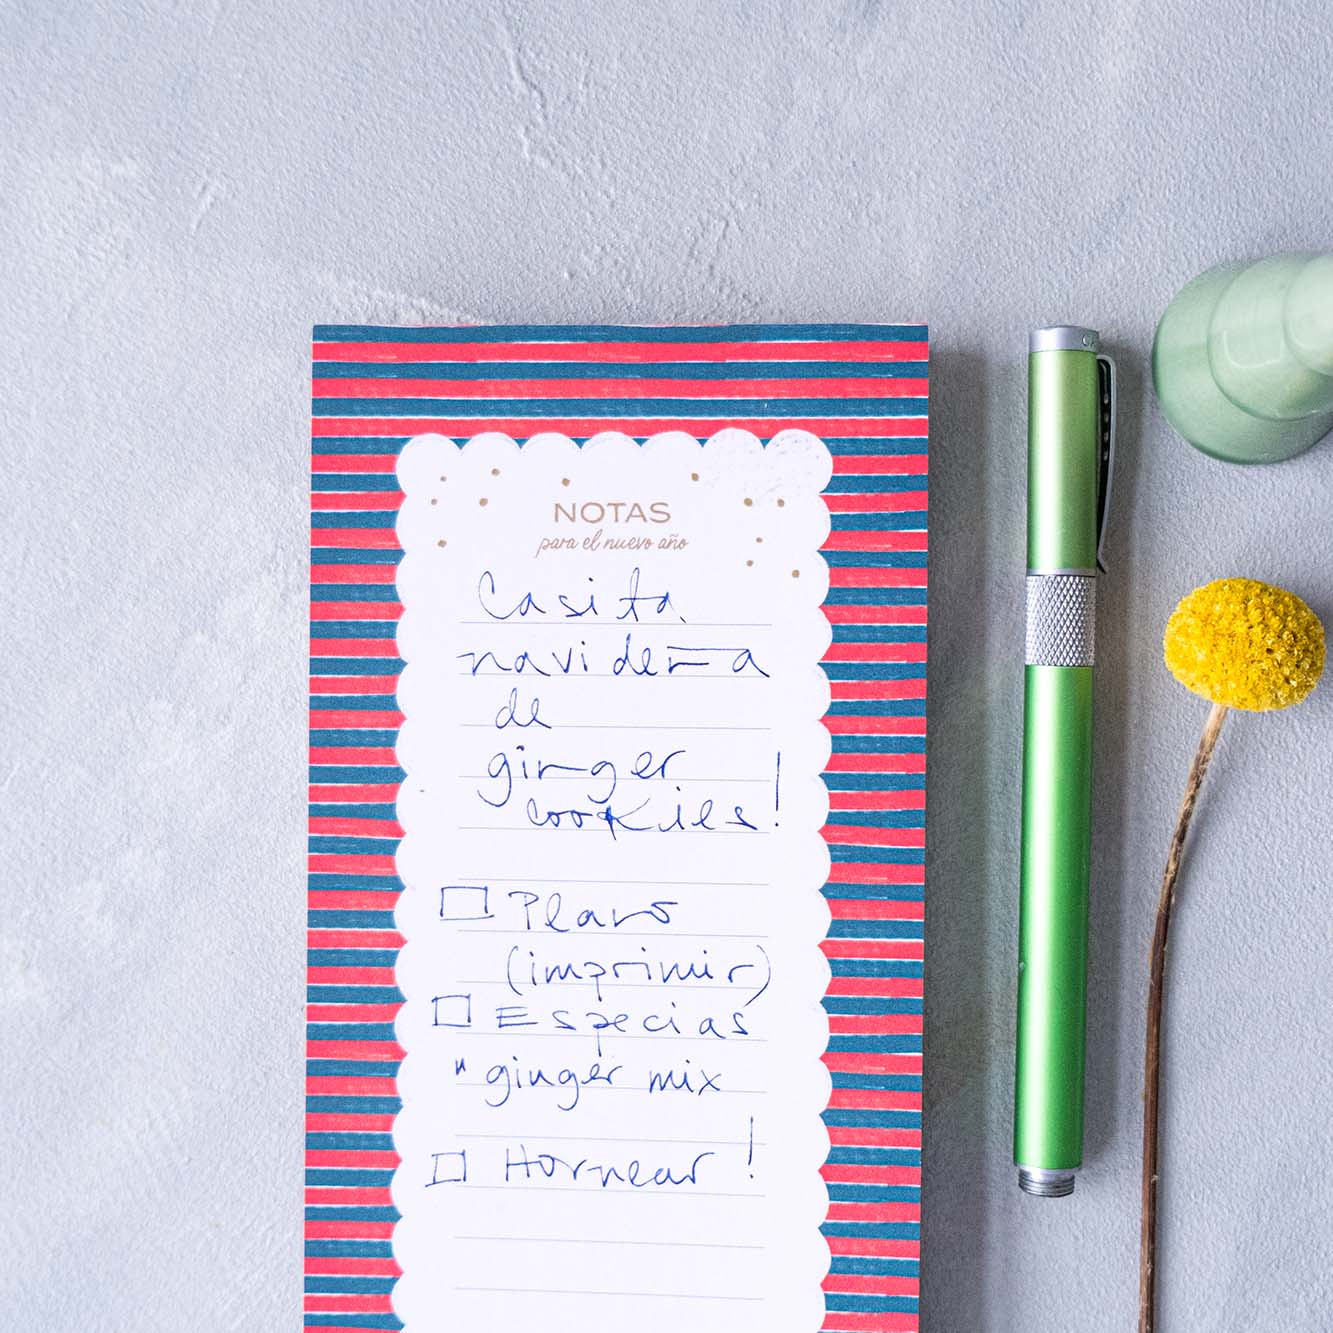 NOTAS
para el nuevo año
Casita
navideña
de
ginger
cookies!
Plano
(imprimir)
Especias
"ginger mix
Hornear!